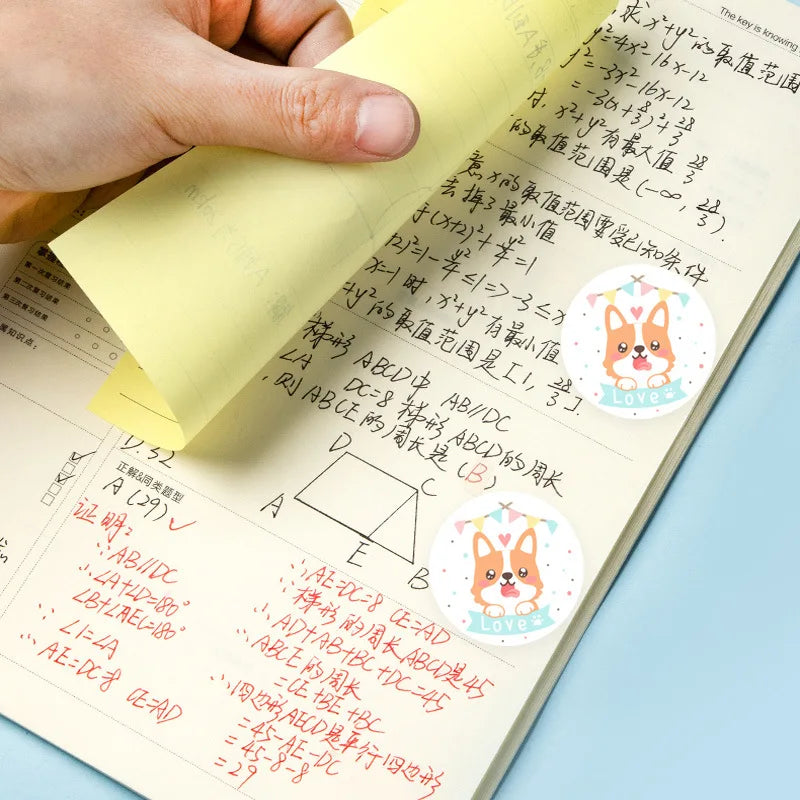 The key is knowing
求 x²+y² 的取值范围
y²=4x²-16x-12
y²=-3x²-16x-12
=-3(x+8/3)²+28/3
时, x²+y² 有最大值 28/3
的取值范围是 (-∞, 28/3).
意 x 的取值范围要受已知条件
去掉了最小值
(x+2)²+y²/4=1
+2)²=1-y²/4≤1=>-3≤x
x=-1时, x²+y² 有最小值
+y² 的取值范围是 [1, 28/3]
梯形 ABCD中 AB//DC
∠A DC=8 梯形 ABCD的周长
则 ABCE 的周长是 (B)
第一次复习结果
第二次复习结果
第三次复习结果
属知识点:
D. 32
正解&同类题型
A (29) ✓
D
C
A
E
B
证明:
∵AB//DC
∴∠A+∠D=180°
∠B+∠AEC=180°
∵∠1=∠A
∴AE=DC=8 CE=AD
∴AE=DC=8 CE=AD
∵梯形的周长ABCD是45
∴AD+AB+BC+DC=45
∴ABCE的周长
=CE+BE+BC
∴四边形AECD是平行四边形
=45-AE-DC
=45-8-8
=29
Love
Love